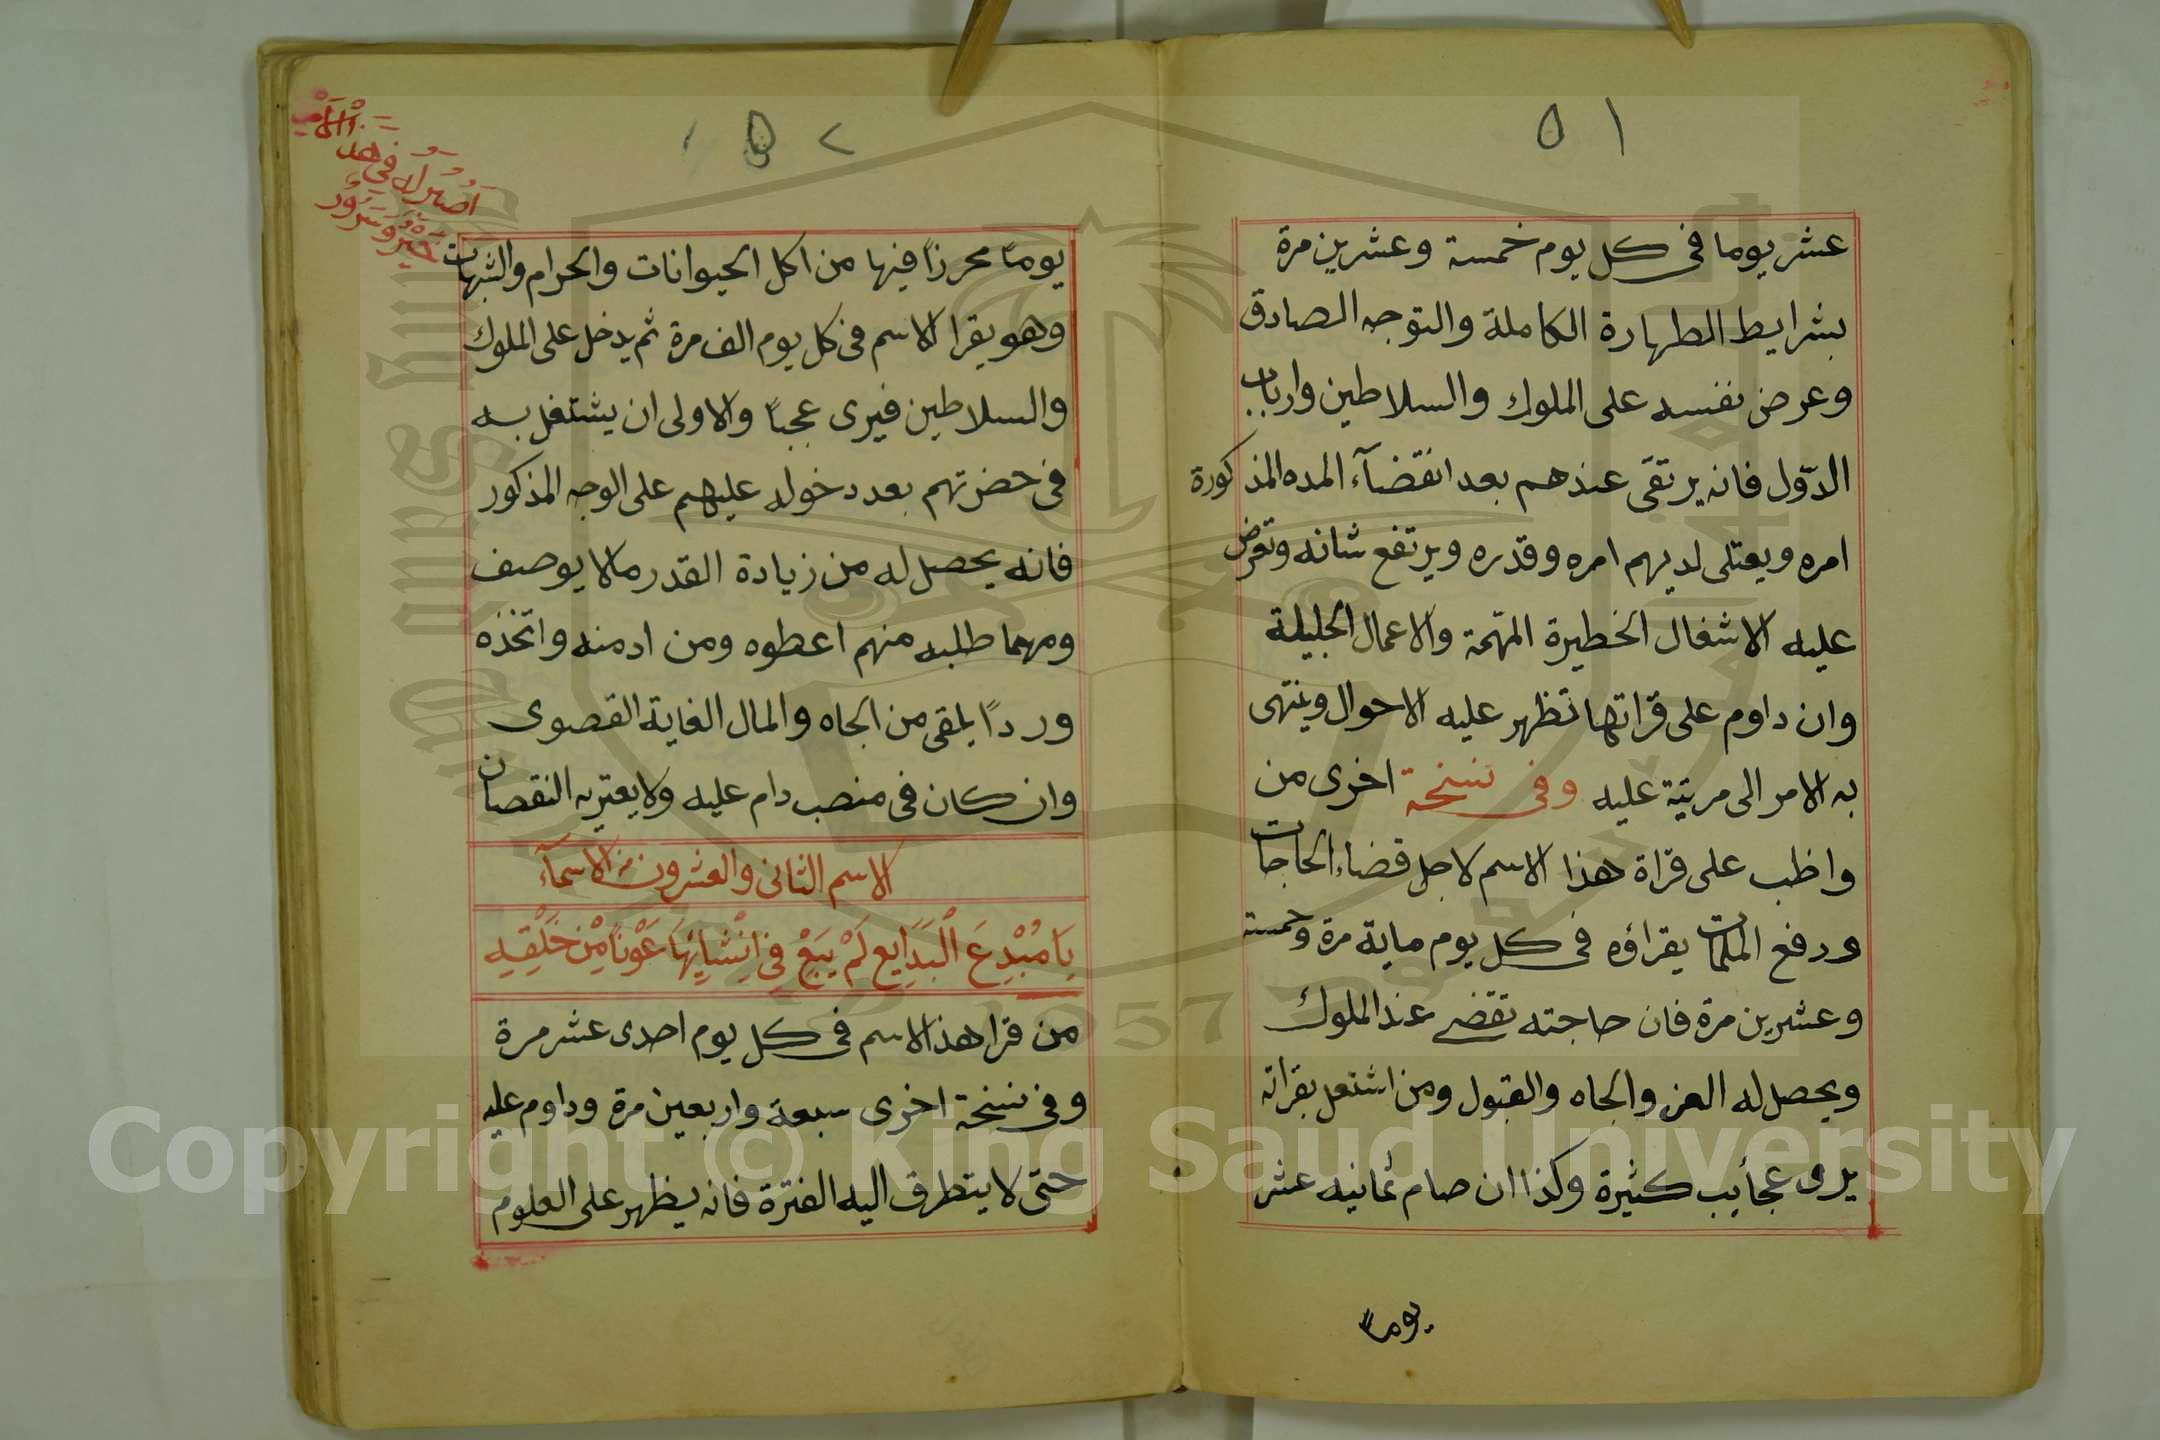 ٥١
عشر يوما فى كل يوم خمسة وعشرين مرة
بشرايط الطهارة الكاملة والتوجه الصادق
وعرض نفسه على الملوك والسلاطين وارباب
الدّول فانه يرتقى عندهم بعد انقضآء المده المذكورة
امره ويعتلى لديهم امره وقدره ويرتفع شانه وتعرض
عليه الاشغال الخطيرة المهمّة والاعمال الجليلة
وان داوم على قراتها تظهر عليه الاحوال وينتهى
به الامر الى مرتبة عليه وفى نسخة اخرى من
واظب على قراة هذا الاسم لاجل قضاء الحاجات
ودفع الملمات يقراؤه فى كل يوم ماية مرة وخمسة
وعشرين مرة فان حاجته تقضے عند الملوك
ويحصل له العز والجاه والقبول ومن اشتغل بقراته
يرى عجايب كثيرة وكذا ان صام ثمانيه عشر
يوما
٥٢
يوماً محرزاً فيها من اكل الحيوانات والحرام والشبهات
وهو يقرا الاسم فى كل يوم الف مرة ثم يدخل على الملوك
والسلاطين فيرى عجباً والاولى ان يشتغل به
فى حضرتهم بعد دخوله عليهم على الوجه المذكور
فانه يحصل له من زيادة القدر مالا يوصف
ومهما طلبه منهم اعطوه ومن ادمنه واتخذه
ورداً يلقى من الجاه والمال الغاية القصوى
وان كان فى منصب دام عليه ولا يعتريه النقصان
الاسم الثانى والعشرون من الاسمآء
يَا مُبْدِعَ الْبَدَايِع لَمْ يَبْغِ فِى اِنْشَائِهَا عَوْنًا مِنْ خَلْقِهِ
من قرا هذا الاسم فى كل يوم احدى عشر مرة
وفى نسخة اخرى سبعة واربعين مرة وداوم عليه
حتى لا يتطرق اليه الفترة فانه يظهر على العلوم
Copyright © King Saud University
1957